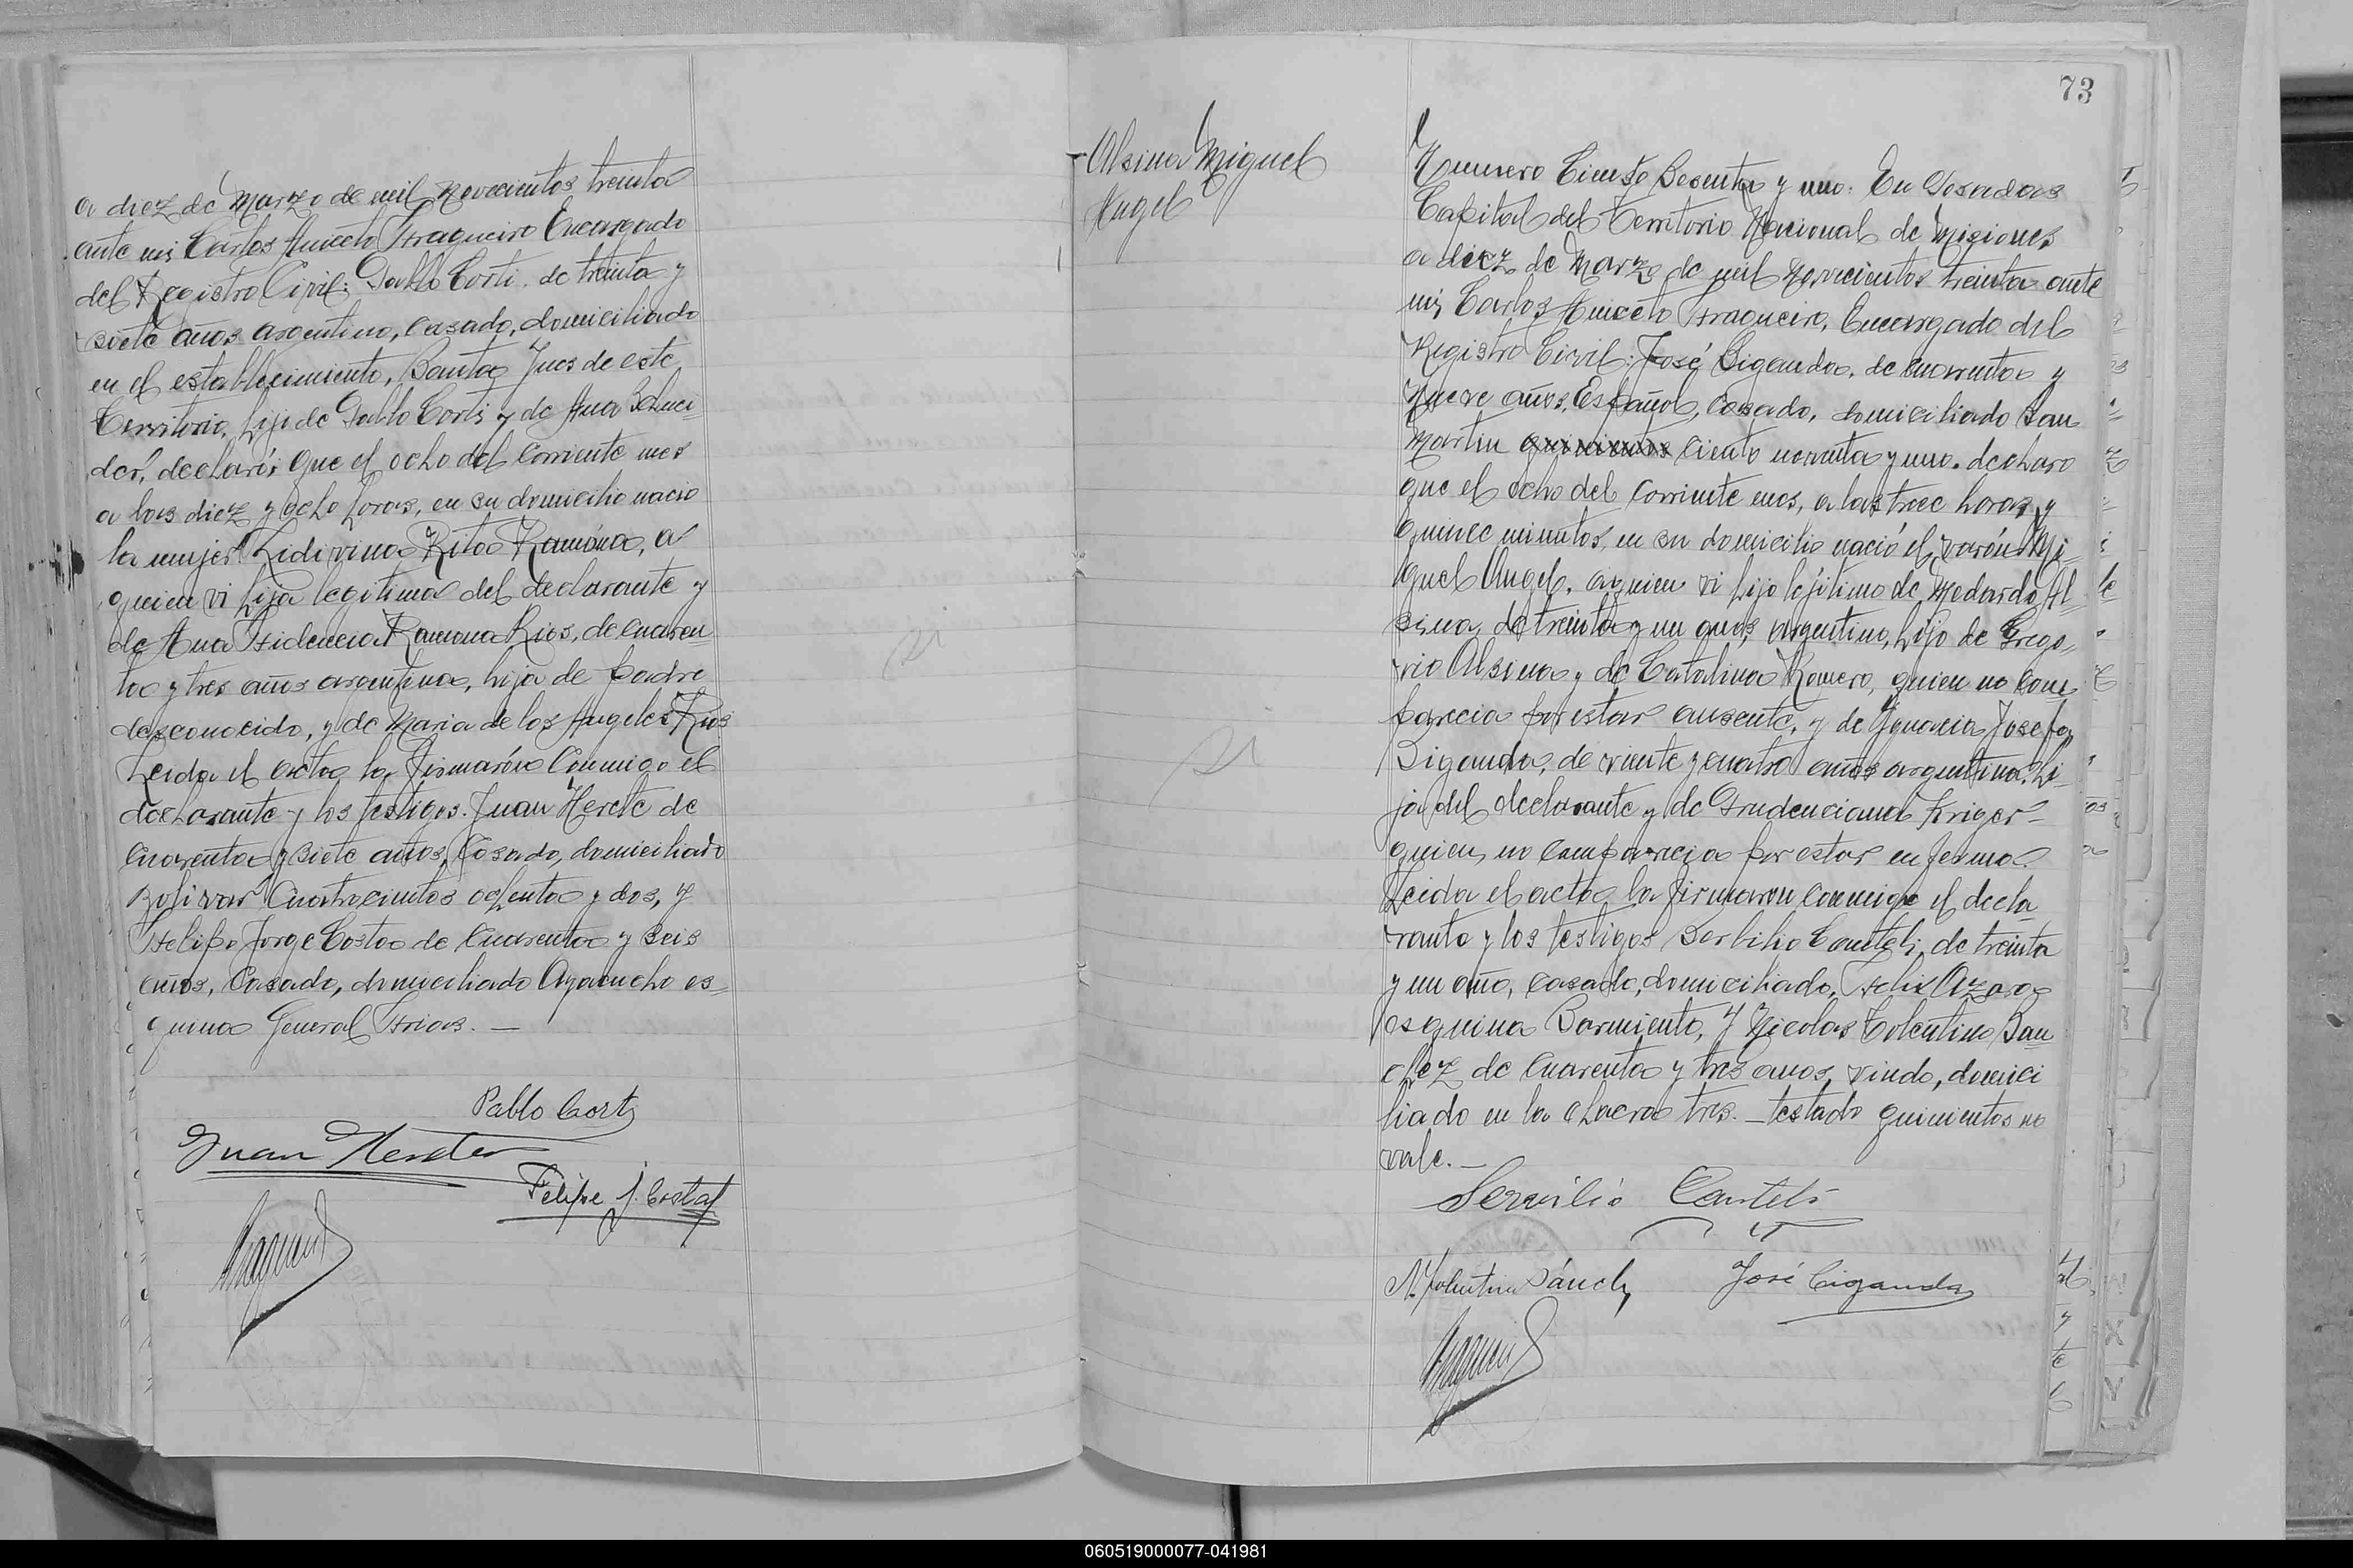 a diez de Marzo de mil novecientos treinta
ante mi, Carlos Aniceto Fragueiro Encargado
del Registro Civil: Pablo Corti, de treinta y
siete años argentino, casado, domiciliado
en el establecimiento, Santa Ines de este
Territorio, hijo de Pablo Corti y de Ana
declaró: que el ocho del corriente mes
a las diez y ocho horas, en su domicilio nacio
la mujer Lidivina Rita Ramóna, a
quien vi hija legitima del declarante y
de Ana Fidencia Ramona Rios, de cuaren
ta y tres años argentina, hija de padre
desconocido, y de Maria de los Angeles Rios
Leida el acta la firmarón Conmigo el
declarante y los testigos. Juan de
Cuarenta y siete años, Casado, domiciliado
Bolivar Cuatrocientos ochenta y dos, y
Felipe Jorge Costa de Cuarenta y seis
años, Casado, domiciliado Ayacucho es-
quina General Frias. —
Pablo Corti
Juan
Felipe J. Costa
73
Alsina Miguel
Angel
Numero Ciento Sesenta y uno. En Posadas
Capital del Territorio Nacional de Misiones
a diez de Marzo de mil Novecientos treinta ante
mi, Carlos Aniceto Fragueiro, Encargado del
Registro Civil: José Ciganda, de cuarenta y
Nueve años, Español, Casado, domiciliado San
Martin quinientos ciento noventa y uno. declaro
que el ocho del corriente mes, a las trece horas y
quince minutos, en su domicilio nació el varón Mi-
guel Angel, a quien vi hijo lejitimo de Medardo Al-
sina, de treinta y un años, argentino, hijo de Grego-
rio Alsina y de Catalina Romero, quien no com
parecia por estar ausente, y de Ignacia Josefa
Ciganda, de veinte y cuatro años argentina, hi-
ja del declarante y de Prudenciana Kriger-
quien no comparecia por estar enferma.
Leida el acta la firmaron conmigo el decla
rante y los testigos Serbilio Canteli, de treinta
y un año, casado, domiciliado, Felix Azara
esquina Sarmiento, y Nicolas Tolentino San
chez de Cuarenta y tres años, viudo, domici
liado en la chacra tres. — testado quinientos no
vale. —
Servilio Canteli
N. Tolentino Sánchez José Ciganda
060519000077-041981